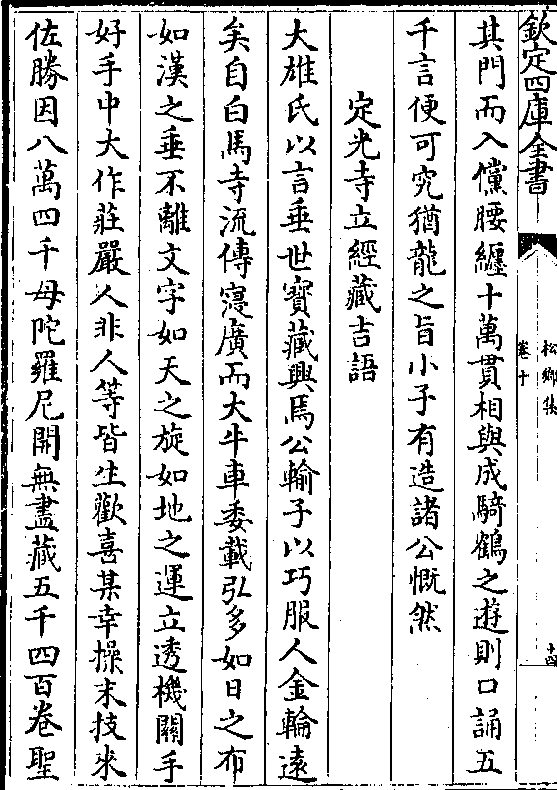 欽定四庫全書
松鄉集
卷十
十四
其門而入儻腰纏十萬貫相與成騎鶴之遊則口誦五
千言便可究猶龍之旨小子有造諸公慨然
定光寺立經藏吉語
大雄氏以言垂世寶藏興焉公輸子以巧服人金輪遠
矣自白馬寺流傳寖廣而大牛車委載弘多如日之布
如漢之垂不離文字如天之旋如地之運立透機關手
好手中大作莊嚴人非人等皆生歡喜某幸操末技來
佐勝因八萬四千母陀羅尼開無盡藏五千四百卷聖